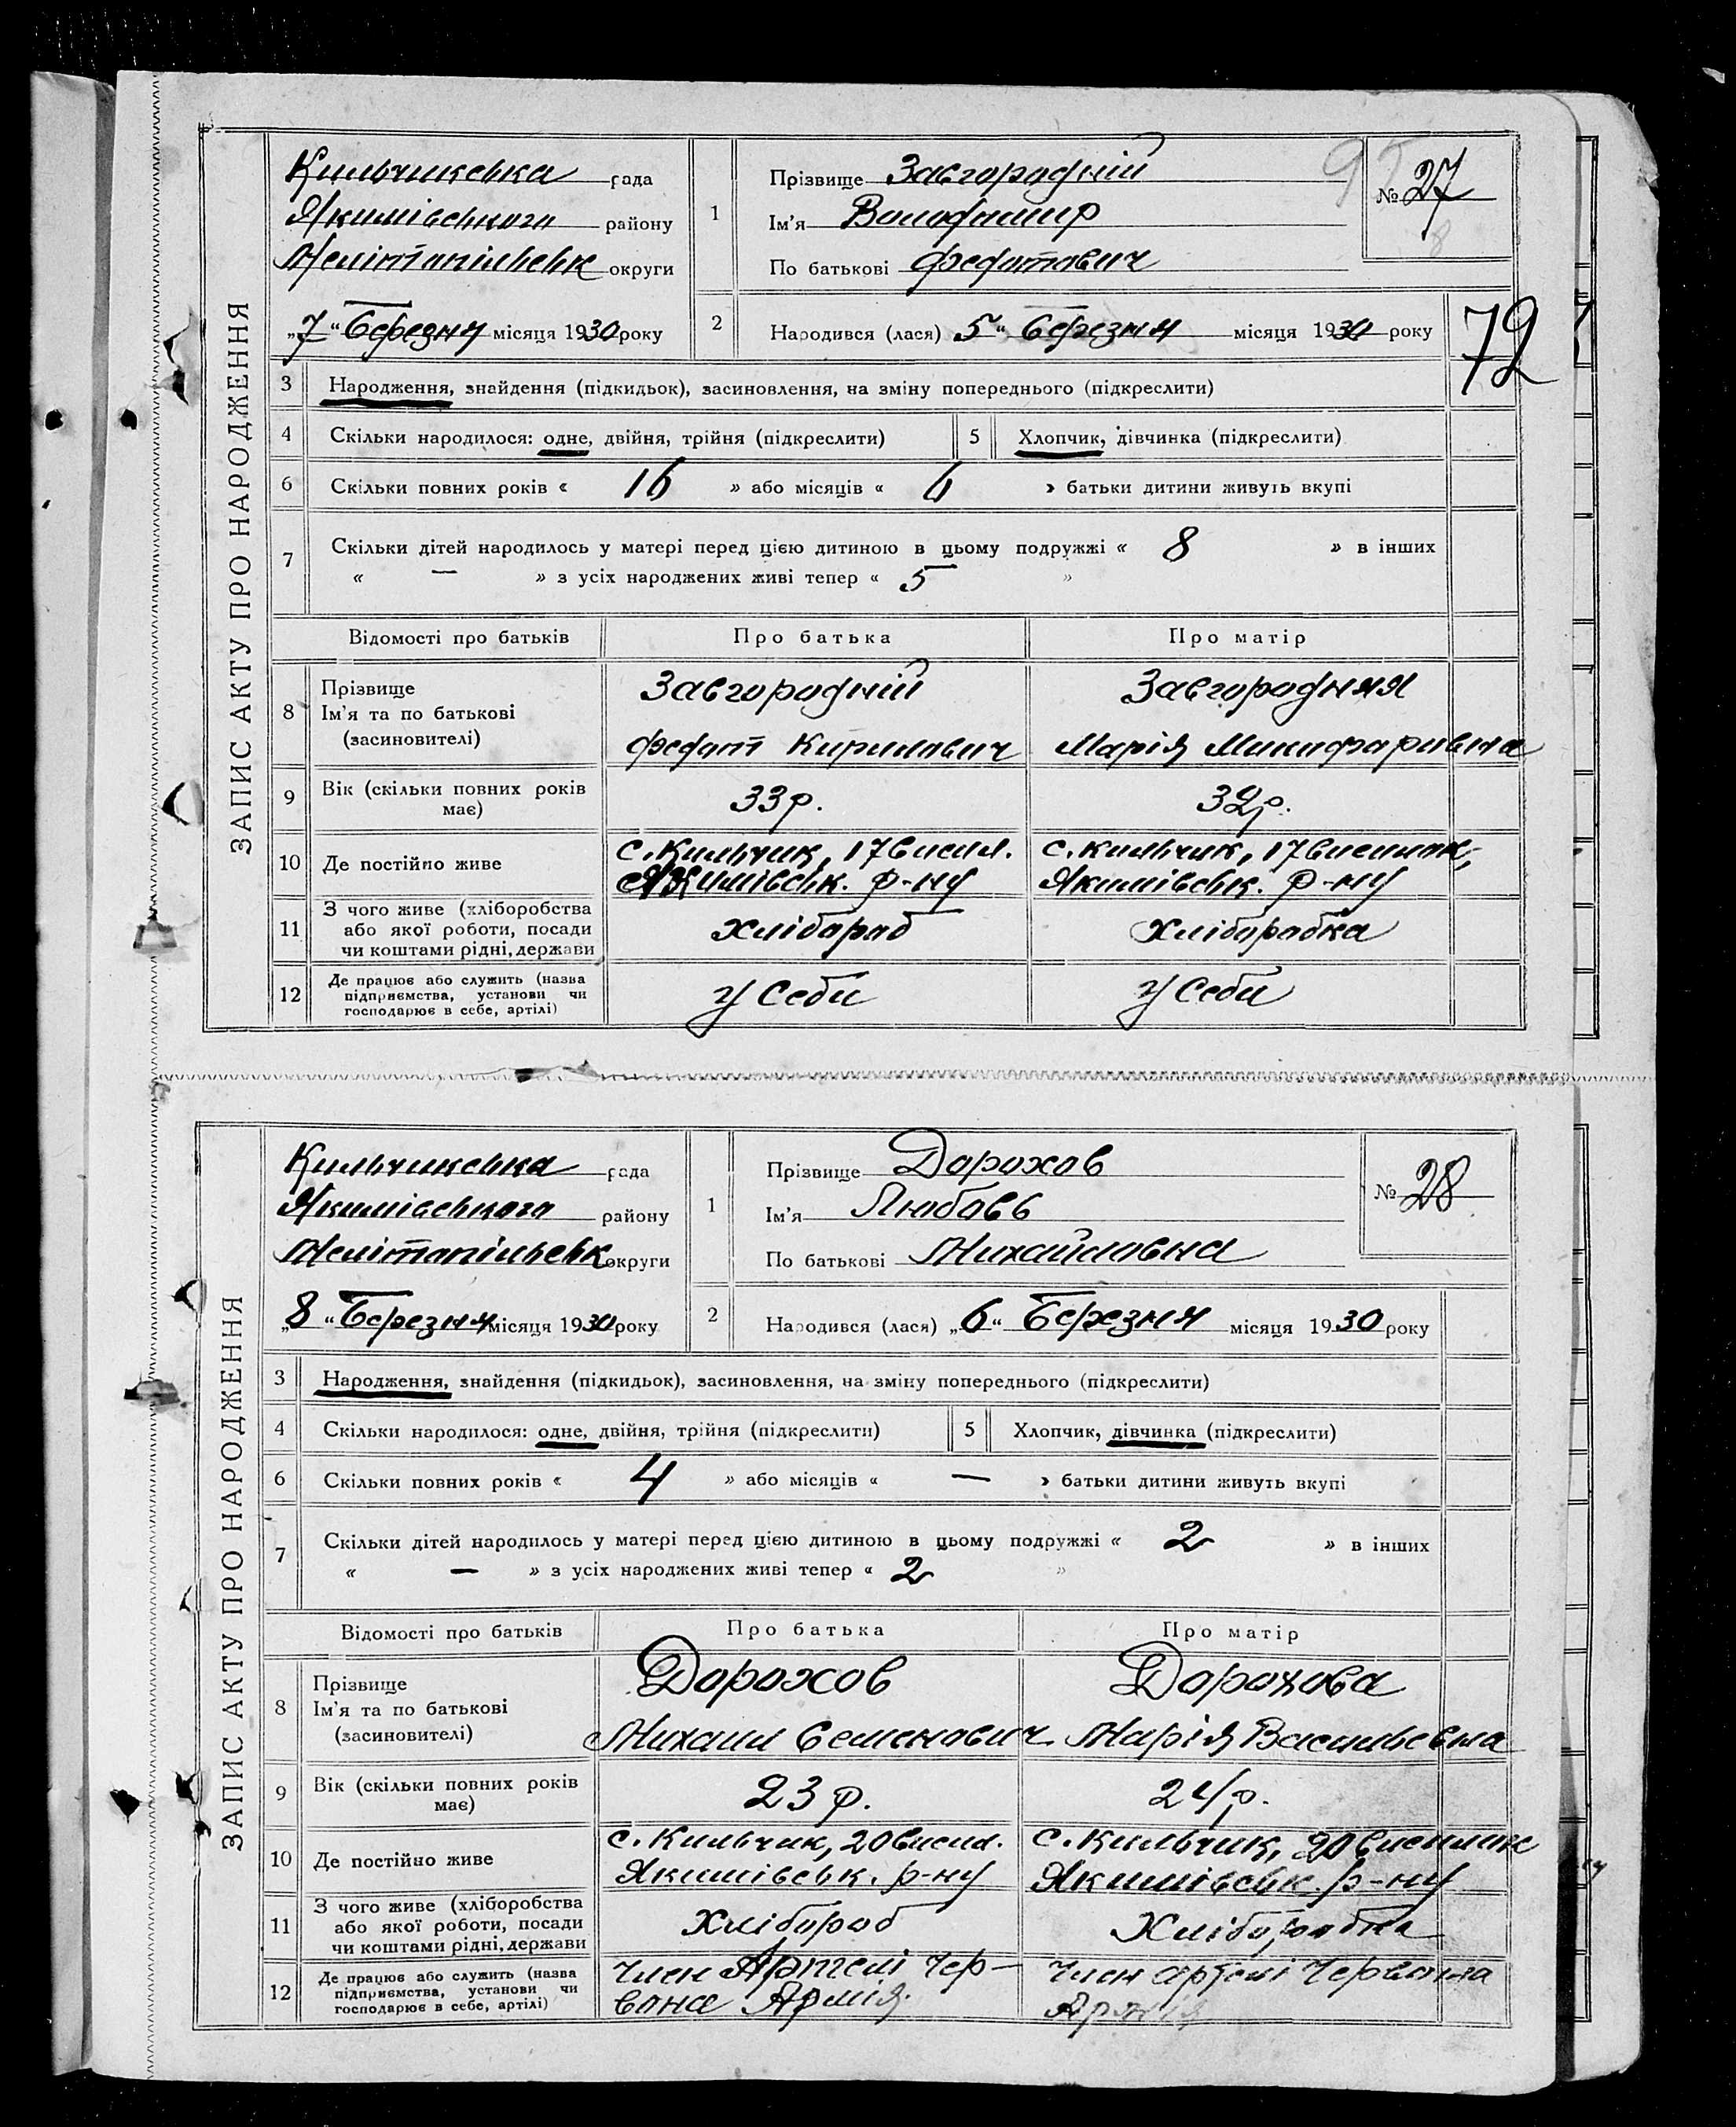 ЗАПИС АКТУ ПРО НАРОДЖЕННЯ
Кильчикська рада
Якимівського району
Мелітопільськ округи
„7“ Березня місяця 1930 року
1
Прізвище Завгородній
Ім'я Володимир
По батькові Федотович
№ 27
2
Народився (лася) 5“ березня місяця 1930 року
72
3 Народження, знайдення (підкидьок), засиновлення, на зміну попереднього (підкреслити)
4 Скільки народилося: одне, двійня, трійня (підкреслити) 5 Хлопчик, дівчинка (підкреслити)
6 Скільки повних років « 16 » або місяців « 6 » батьки дитини живуть вкупі
7 Скільки дітей народилось у матері перед цією дитиною в цьому подружжі « 8 » в інших
« — » з усіх народжених живі тепер « 5 »
Відомості про батьків Про батька Про матір
8 Прізвище Завгородній Завгородняя
Ім'я та по батькові
(засиновителі) Федот Кирилович Марія Микифоривна
9 Вік (скільки повних років має) 33 р. 32 р.
10 Де постійно живе с. Кильчик, 17 висил. с. Кильчик, 17 висилок,
Якимівськ. р-ну Якимівськ. р-ну
11 З чого живе (хліборобства
або якої роботи, посади Хлібороб Хліборобка
чи коштами рідні, держави
12 Де працює або служить (назва
підприємства, установи чи у себи у себи
господарює в себе, артілі)
ЗАПИС АКТУ ПРО НАРОДЖЕННЯ
Кильчикська рада
Якимівського району
Мелітопільськ округи
„8“ Березня місяця 1930 року
1
Прізвище Дорохов
Ім'я Любовь
По батькові Михайловна
№ 28
2
Народився (лася) „6“ Березня місяця 1930 року
3 Народження, знайдення (підкидьок), засиновлення, на зміну попереднього (підкреслити)
4 Скільки народилося: одне, двійня, трійня (підкреслити) 5 Хлопчик, дівчинка (підкреслити)
6 Скільки повних років « 4 » або місяців « — » батьки дитини живуть вкупі
7 Скільки дітей народилось у матері перед цією дитиною в цьому подружжі « 2 » в інших
« — » з усіх народжених живі тепер « 2 »
Відомості про батьків Про батька Про матір
8 Прізвище Дорохов Дорохова
Ім'я та по батькові
(засиновителі) Михаил Семенович Марія Васильевна
9 Вік (скільки повних років має) 23 р. 24 р.
10 Де постійно живе с. Кильчик, 20 висил. с. Кильчик, 20 висилик
Якимівськ. р-ну Якимівськ. р-ну
11 З чого живе (хліборобства
або якої роботи, посади Хлібороб Хліборобка
чи коштами рідні, держави
12 Де працює або служить (назва Член Артелі Чер- Член артелі Червона
підприємства, установи чи вона Армія. Армія
господарює в себе, артілі)